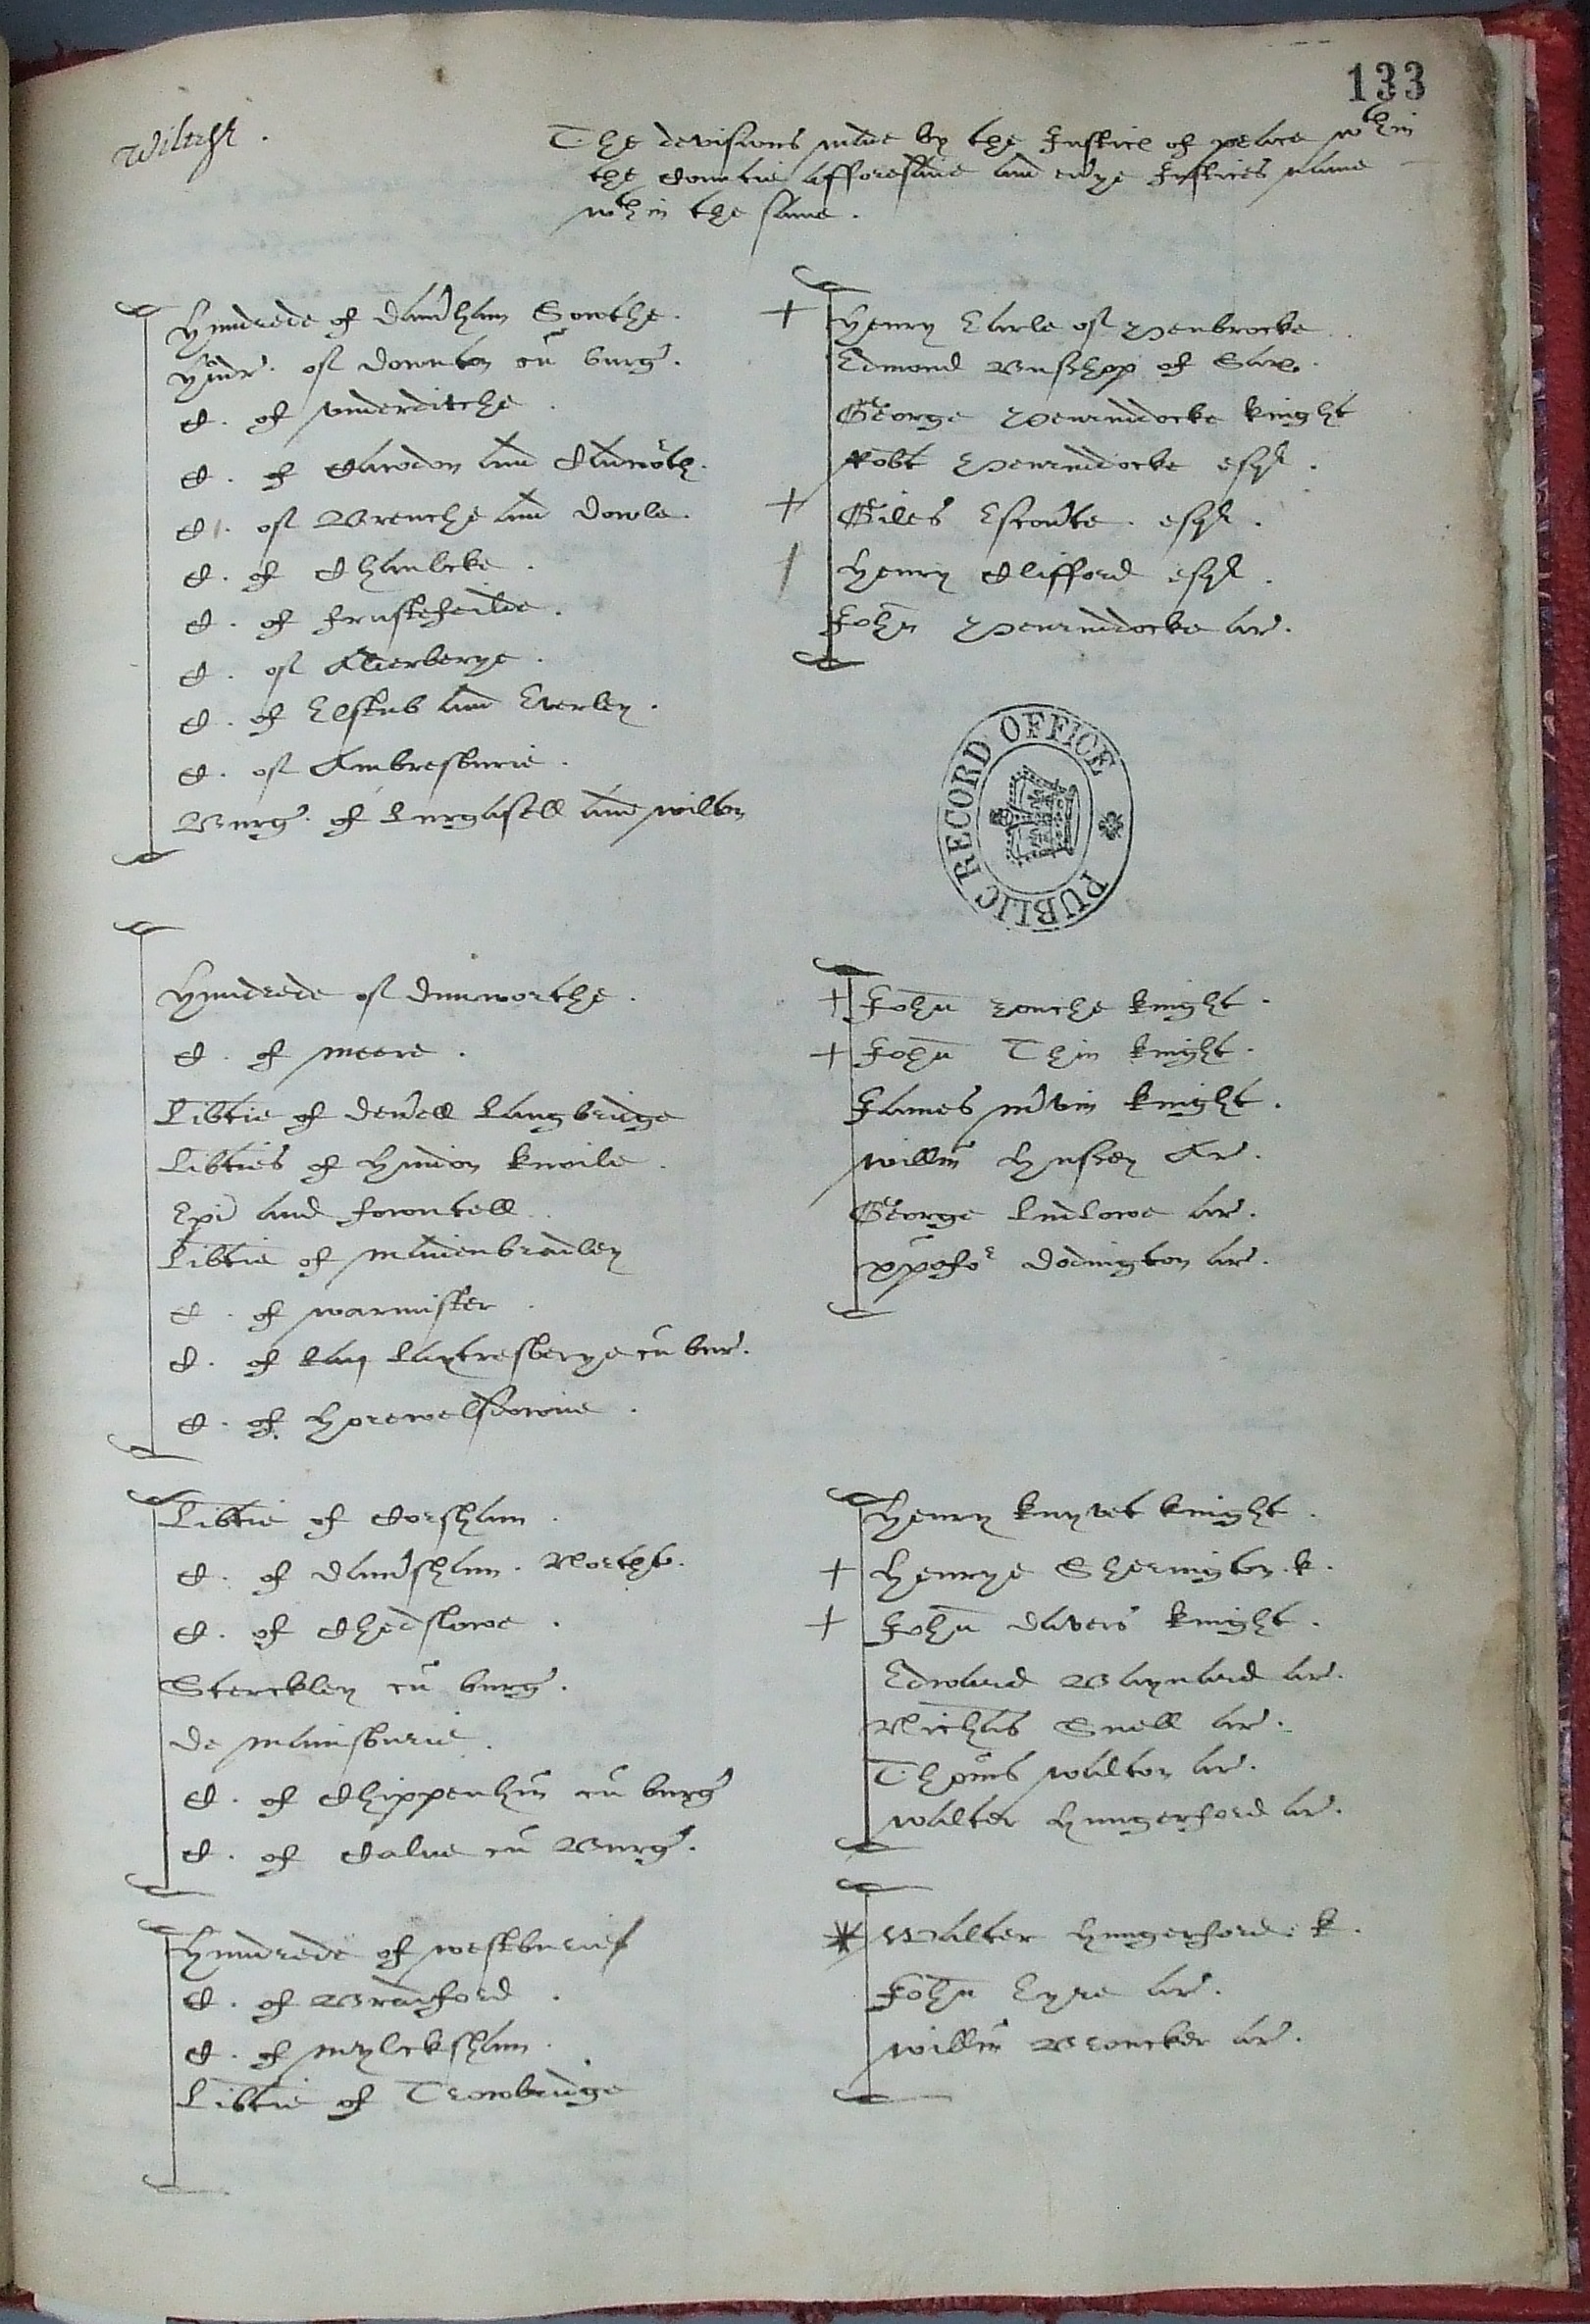 133
Wiltesh .
The devisions made by the Justice of peace wthin
the Countie afforesaide and evrye Justices name
wthin the same .
Hundrede of Damham Sowthe .
Hundr . of Downton cu burg .
C . of vnderditche .
C . of Cawdon and Cadworth .
C . of Brenche and Dowle .
C . of Chaulcke .
C . of frustefeilde .
C . of Alderberye .
C . of Elstub and Everley .
C . of Ambresburie .
Burg . of Lurgasell and wilton
+ Henry Earle of Penbrocke
Edmond Busshop of Sar .
George Penruddocke knight
Robt Penruddocke esqr .
+ Giles Escourte . esqr .
/ Henry Clifford esqr .
John Penruddocke ar .
PUBLIC RECORD OFFICE
Hundrede of Dunworthe .
C . of meere .
Libtie of Devrell Langbridge
Libties of Hyndon knoile .
Epi and fowntell
Libtie of maidenbradley
C . of warmister .
C . of Hay Haytresberye cu bur .
C . of Horewelsdowne .
+ John zouche knight .
+ John Thin knight .
James mrvin knight .
willm Hussey Ar .
George Ludlowe ar .
xpofor Dodington ar .
Libtie of Corsham .
C . of Damsham . Northt .
C . of Chedslowe .
Sterckley cu burg .
de mamsburie .
C . of Chippenhm cu burg
C . of Calne cu Burg .
Henry knyvet knight .
+ Henrye Sherington . k .
+ John Davers knight .
Edward Baynard ar .
Nichas Snell ar .
Thoms walton ar .
walter Hungerford ar .
Hundrede of westburie
C . of Bradford .
C . of mylcksham .
Libtie of Trowbridge
* Walter Hungerford . k .
John Eyre ar .
willm Broncker ar .